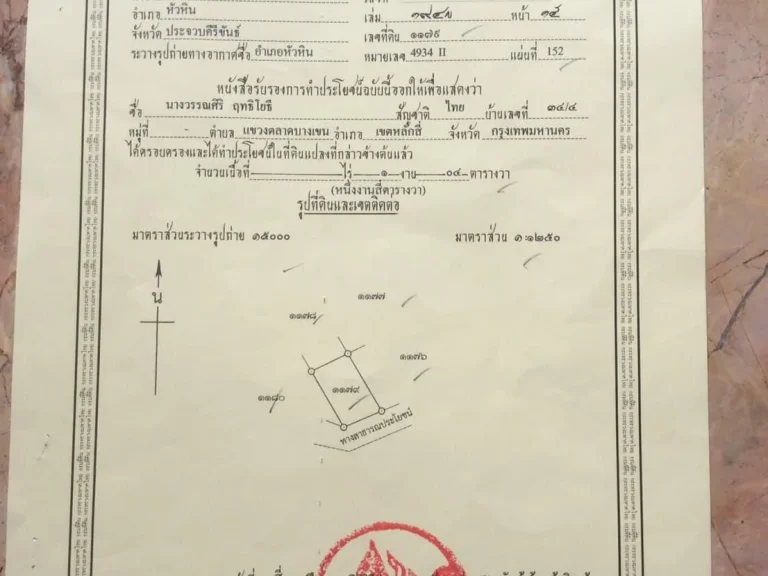 อำเภอ หัวหิน เล่ม หน้า ๑๕
จังหวัด ประจวบคีรีขันธ์ เลขที่ดิน ๑๑๗๙
ระวางรูปถ่ายทางอากาศชื่อ อำเภอหัวหิน หมายเลข 4934 II แผ่นที่ 152
หนังสือรับรองการทำประโยชน์ฉบับนี้ออกให้เพื่อแสดงว่า
ชื่อ นางวรรณศิริ ฤทธิโยธี สัญชาติ ไทย บ้านเลขที่ ๓๔/๔
หมู่ที่ - ตำบล แขวงตลาดบางเขน อำเภอ เขตหลักสี่ จังหวัด กรุงเทพมหานคร
ได้ครอบครองและได้ทำประโยชน์ในที่ดินแปลงที่กล่าวข้างต้นแล้ว
จำนวนเนื้อที่ — ไร่ — ๑ — งาน — ๐๔ — ตารางวา
(หนึ่งงานสี่ตารางวา)
รูปที่ดินและเขตติดต่อ
มาตราส่วนระวางรูปถ่าย ๑๕๐๐๐ มาตราส่วน ๑:๑๒๕๐
น
๑๑๗๗
๑๑๗๘
๑๑๗๖
๑๑๗๙
๑๑๘๐
ทางสาธารณประโยชน์